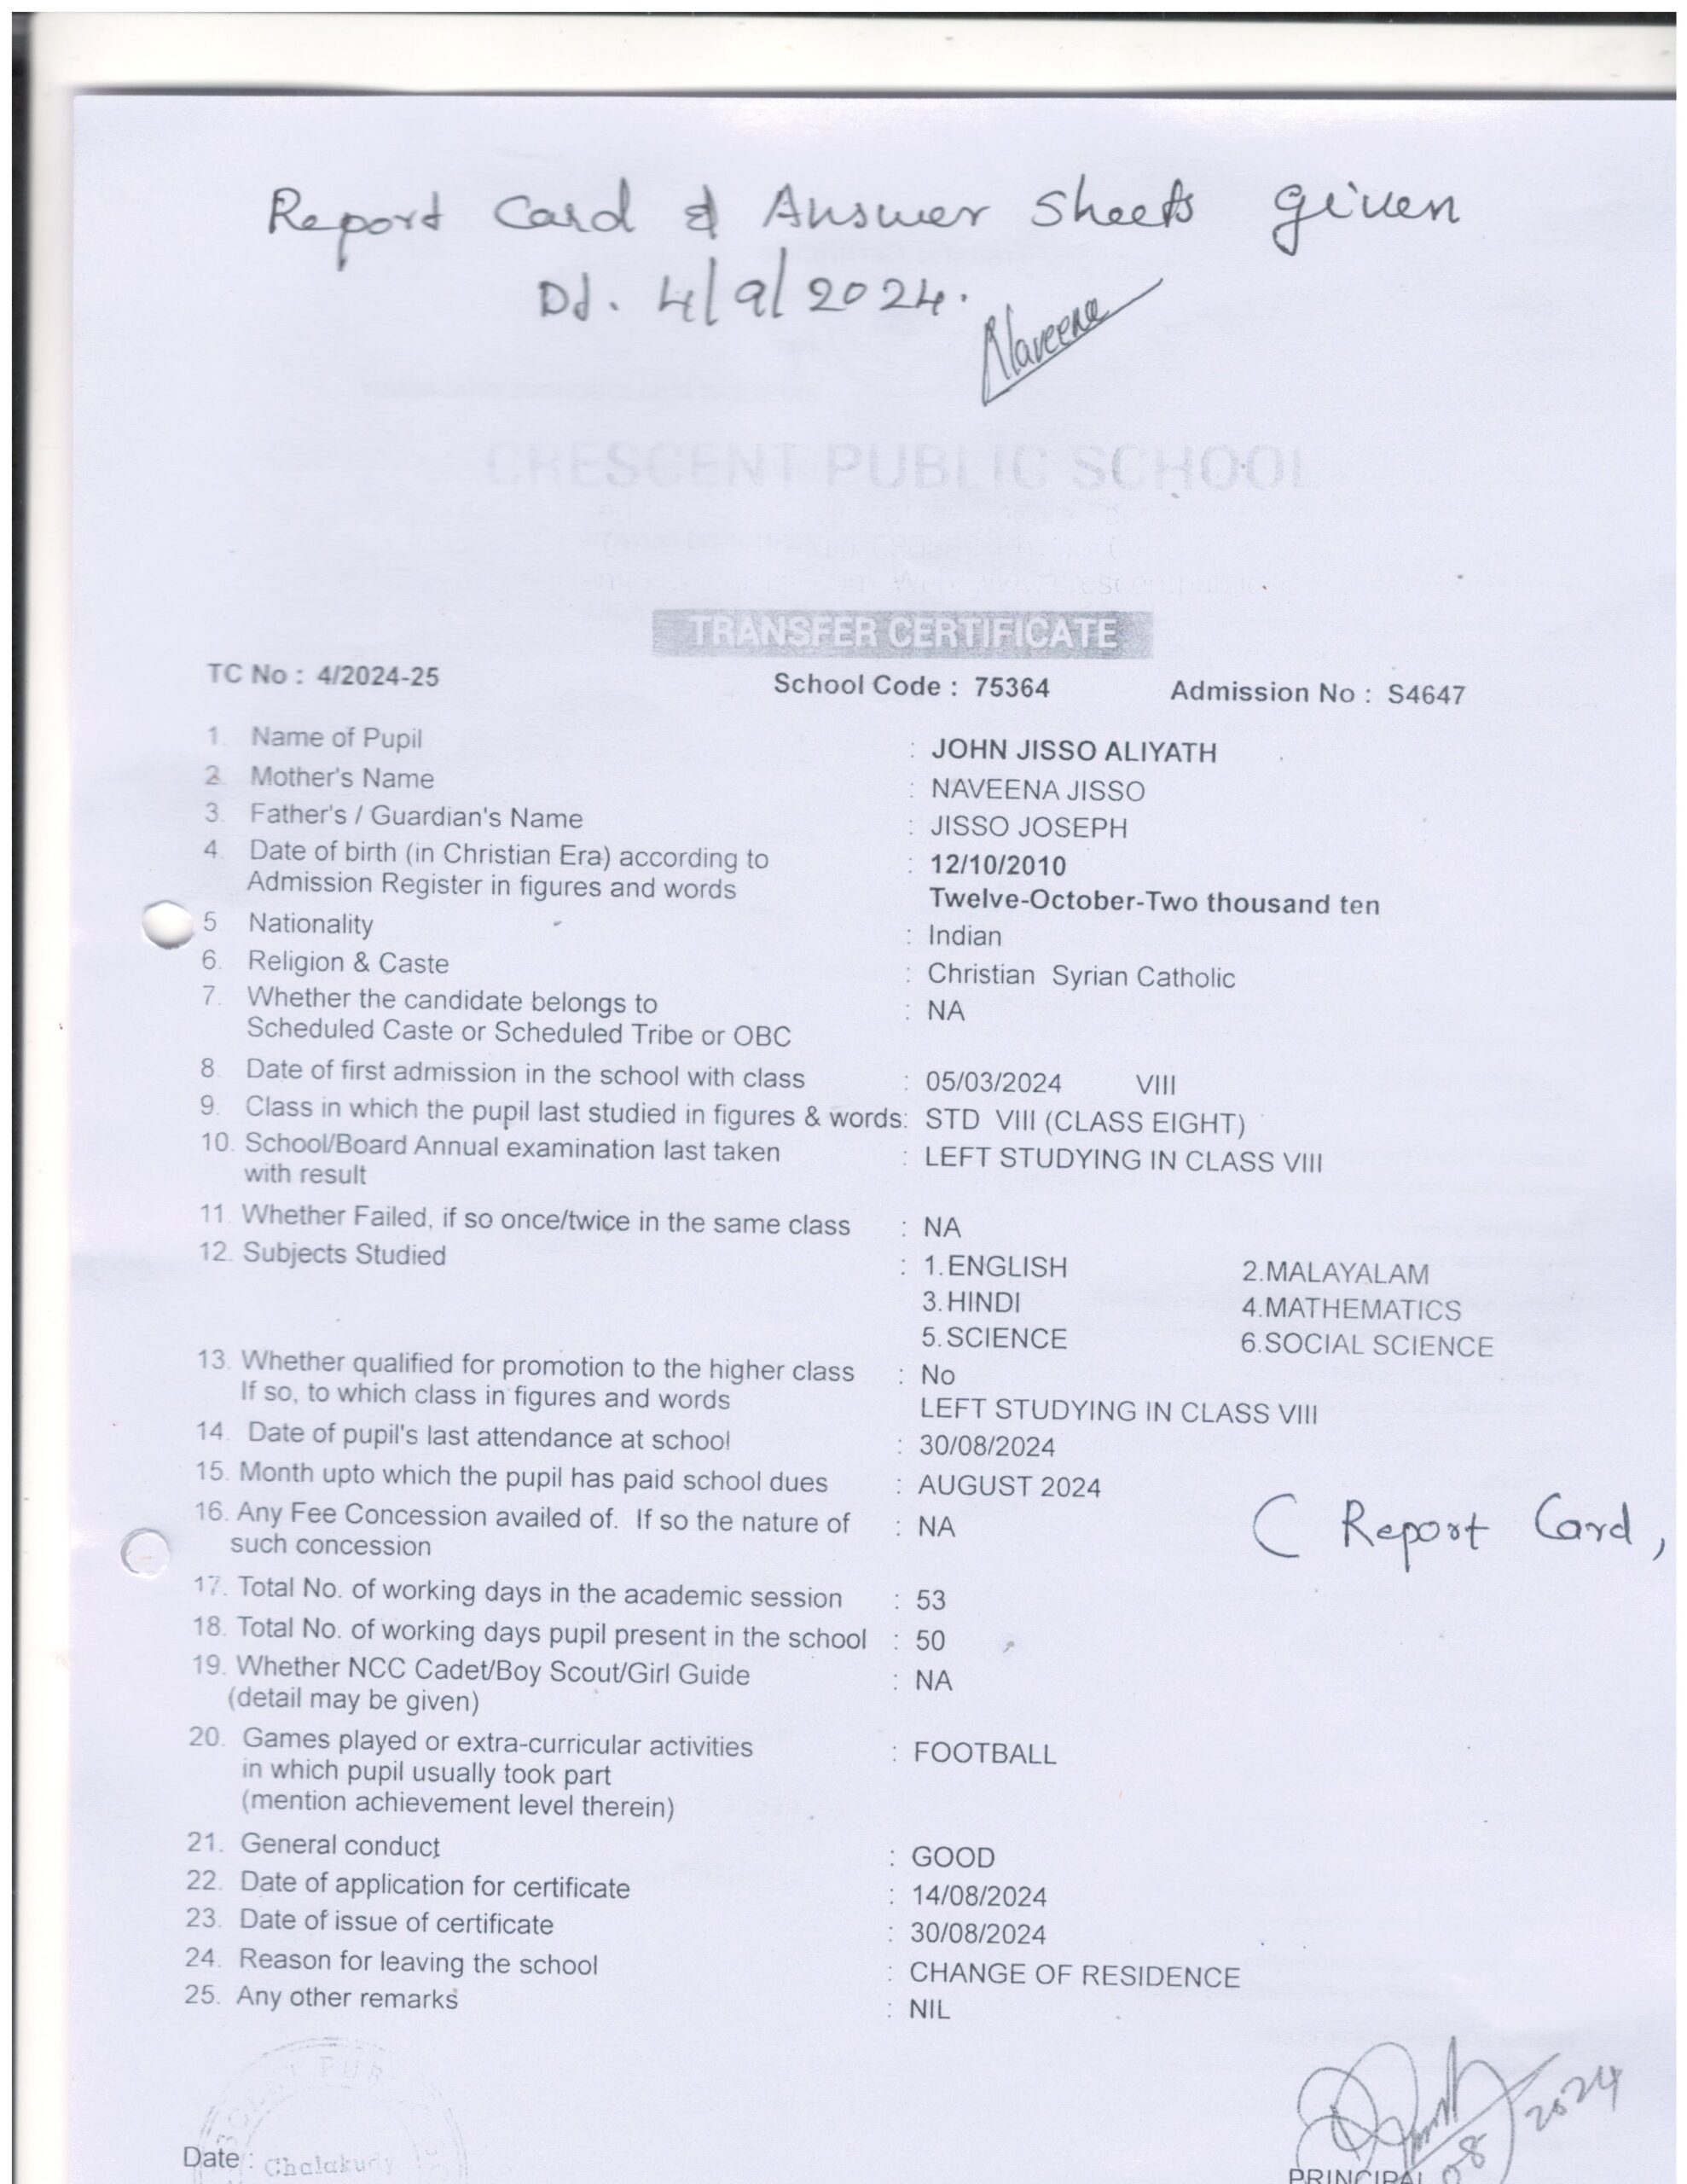 Report Card & Answer Sheets given
Dt. 4/9/2024.
Naveena
CRESCENT PUBLIC SCHOOL
TRANSFER CERTIFICATE
TC No : 4/2024-25 School Code : 75364 Admission No : S4647
1. Name of Pupil : JOHN JISSO ALIYATH
2. Mother's Name : NAVEENA JISSO
3. Father's / Guardian's Name : JISSO JOSEPH
4. Date of birth (in Christian Era) according to : 12/10/2010
Admission Register in figures and words Twelve-October-Two thousand ten
5 Nationality : Indian
6. Religion & Caste : Christian Syrian Catholic
7. Whether the candidate belongs to : NA
Scheduled Caste or Scheduled Tribe or OBC
8. Date of first admission in the school with class : 05/03/2024 VIII
9. Class in which the pupil last studied in figures & words: STD VIII (CLASS EIGHT)
10. School/Board Annual examination last taken : LEFT STUDYING IN CLASS VIII
with result
11. Whether Failed, if so once/twice in the same class : NA
12. Subjects Studied : 1.ENGLISH 2.MALAYALAM
3.HINDI 4.MATHEMATICS
5.SCIENCE 6.SOCIAL SCIENCE
13. Whether qualified for promotion to the higher class : No
If so, to which class in figures and words LEFT STUDYING IN CLASS VIII
14. Date of pupil's last attendance at school : 30/08/2024
15. Month upto which the pupil has paid school dues : AUGUST 2024
16. Any Fee Concession availed of. If so the nature of : NA
such concession
( Report Card,
17. Total No. of working days in the academic session : 53
18. Total No. of working days pupil present in the school : 50
19. Whether NCC Cadet/Boy Scout/Girl Guide : NA
(detail may be given)
20. Games played or extra-curricular activities : FOOTBALL
in which pupil usually took part
(mention achievement level therein)
21. General conduct : GOOD
22. Date of application for certificate : 14/08/2024
23. Date of issue of certificate : 30/08/2024
24. Reason for leaving the school : CHANGE OF RESIDENCE
25. Any other remarks : NIL
2024
08
Date : Chalakudy
PRINCIPAL